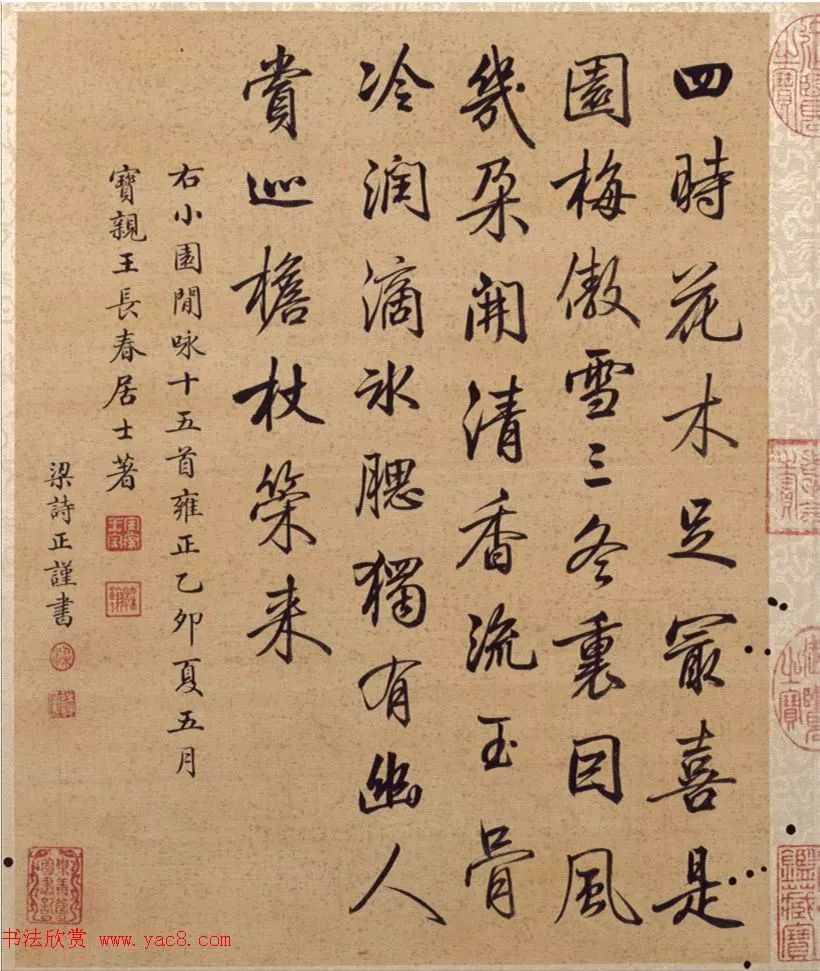 四時花木足冣喜是
園梅傲雪三冬裏因風
幾朶開清香流玉骨
冷潤滴氷腮獨有幽人
賞巡檐杖策来
右小園閒咏十五首雍正乙卯夏五月
寶親王長春居士著
梁詩正謹書
书法欣赏 www.yac8.com